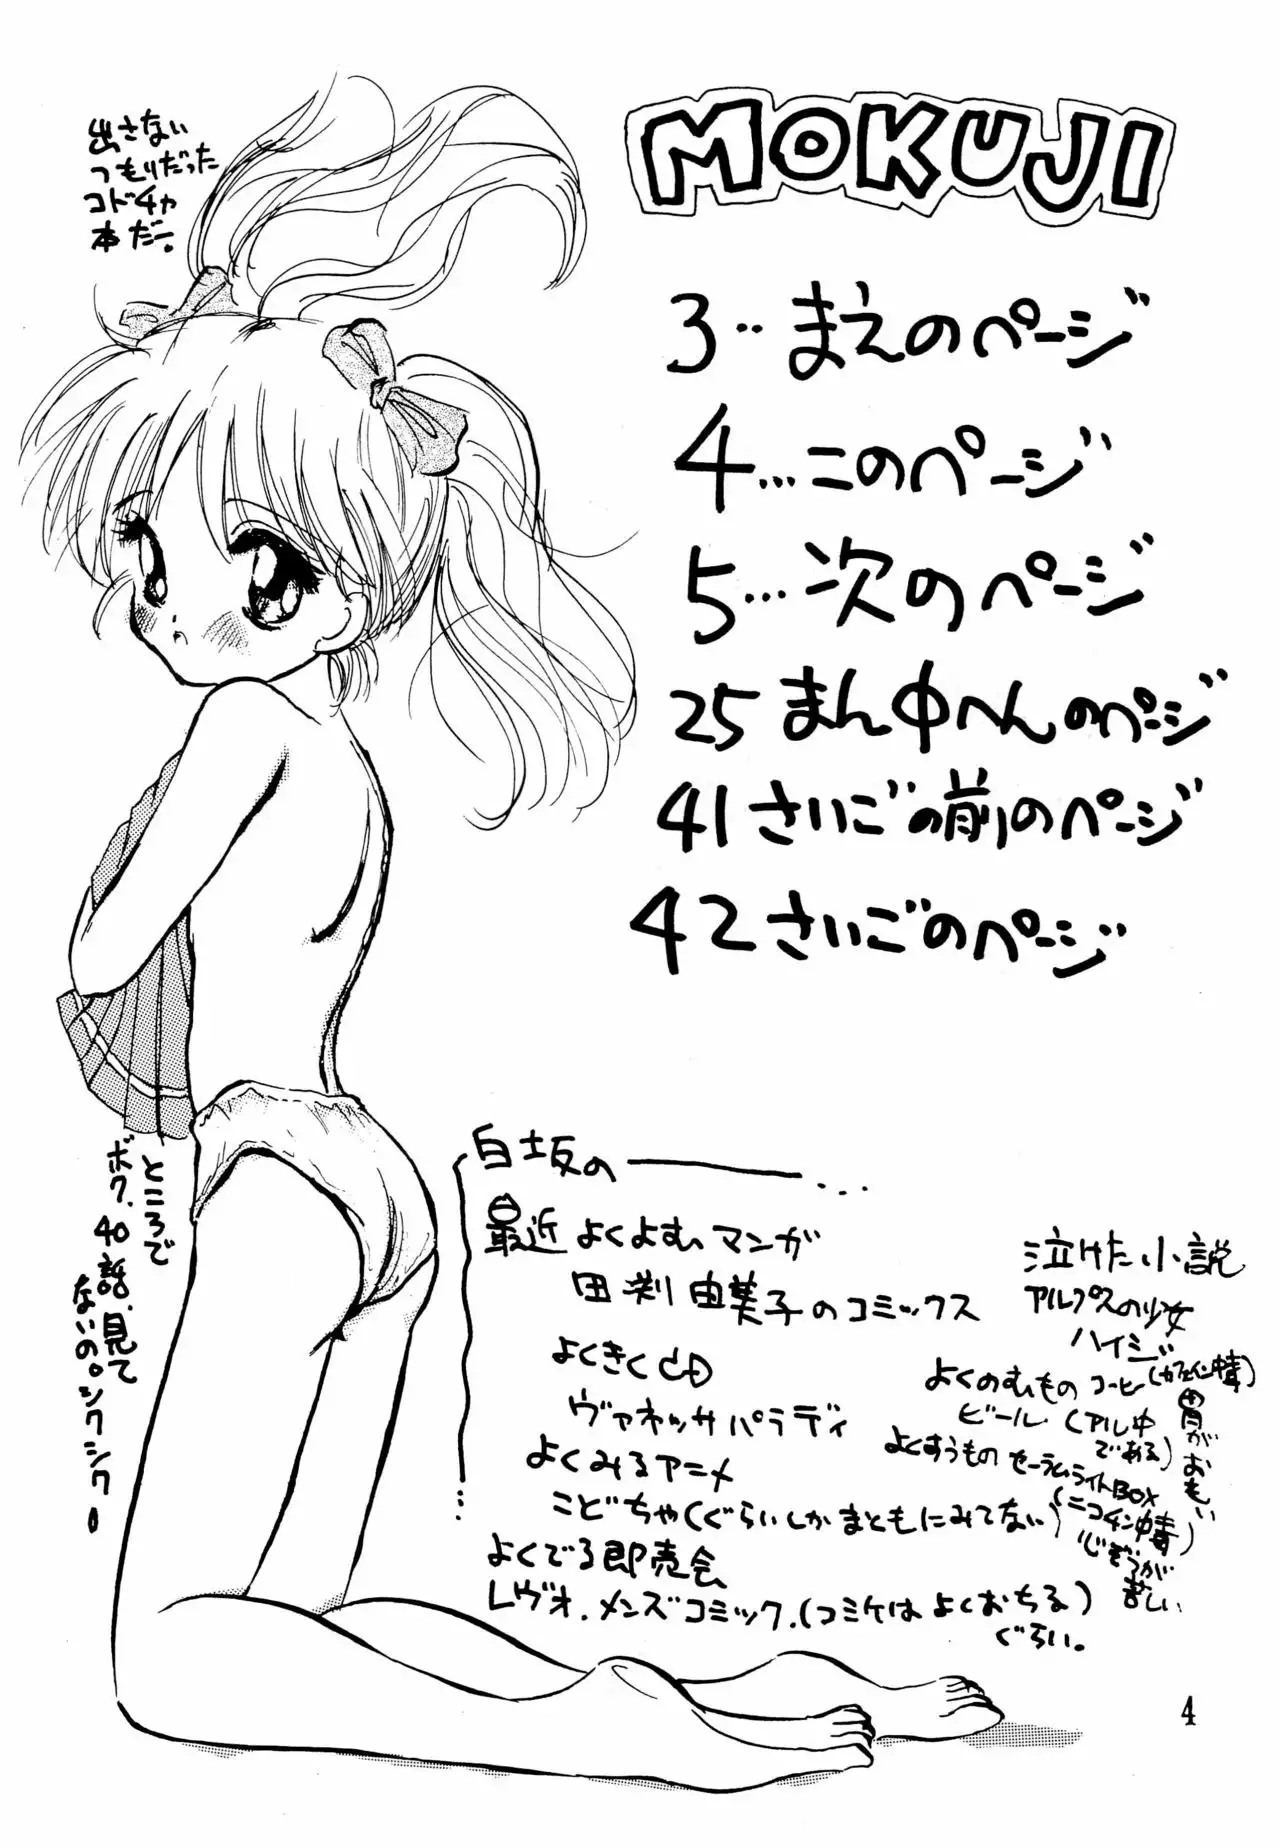 MOKUJI
出さない
つもりだった
コドチャ
本だー。
3‥まえのページ
4…このページ
5…次のページ
25 まん中へんのページ
41 さいごの前のページ
42 さいごのページ
ところで
ボク、40話、見て
ないの。シクシクー
白土坂の
最近よくよむマンガ
田渕由美子のコミックス
よくきくCD
ヴァネッサパラディ
よくみるアニメ
こどちゃ(ぐらいしかまともにみてない)
よくでる即売会
レヴォ.メンズコミック.(コミケはよくおちる)
ぐらい。
泣けた小説
アルプスの少女
ハイジ
よくのむもの コーヒー(カフェイン中毒)
ビール.(アル中
である)
胃がおもい
よくすうもの セーラムライトBOX
(ニコチン中毒)
しんぞうが
苦しい
4